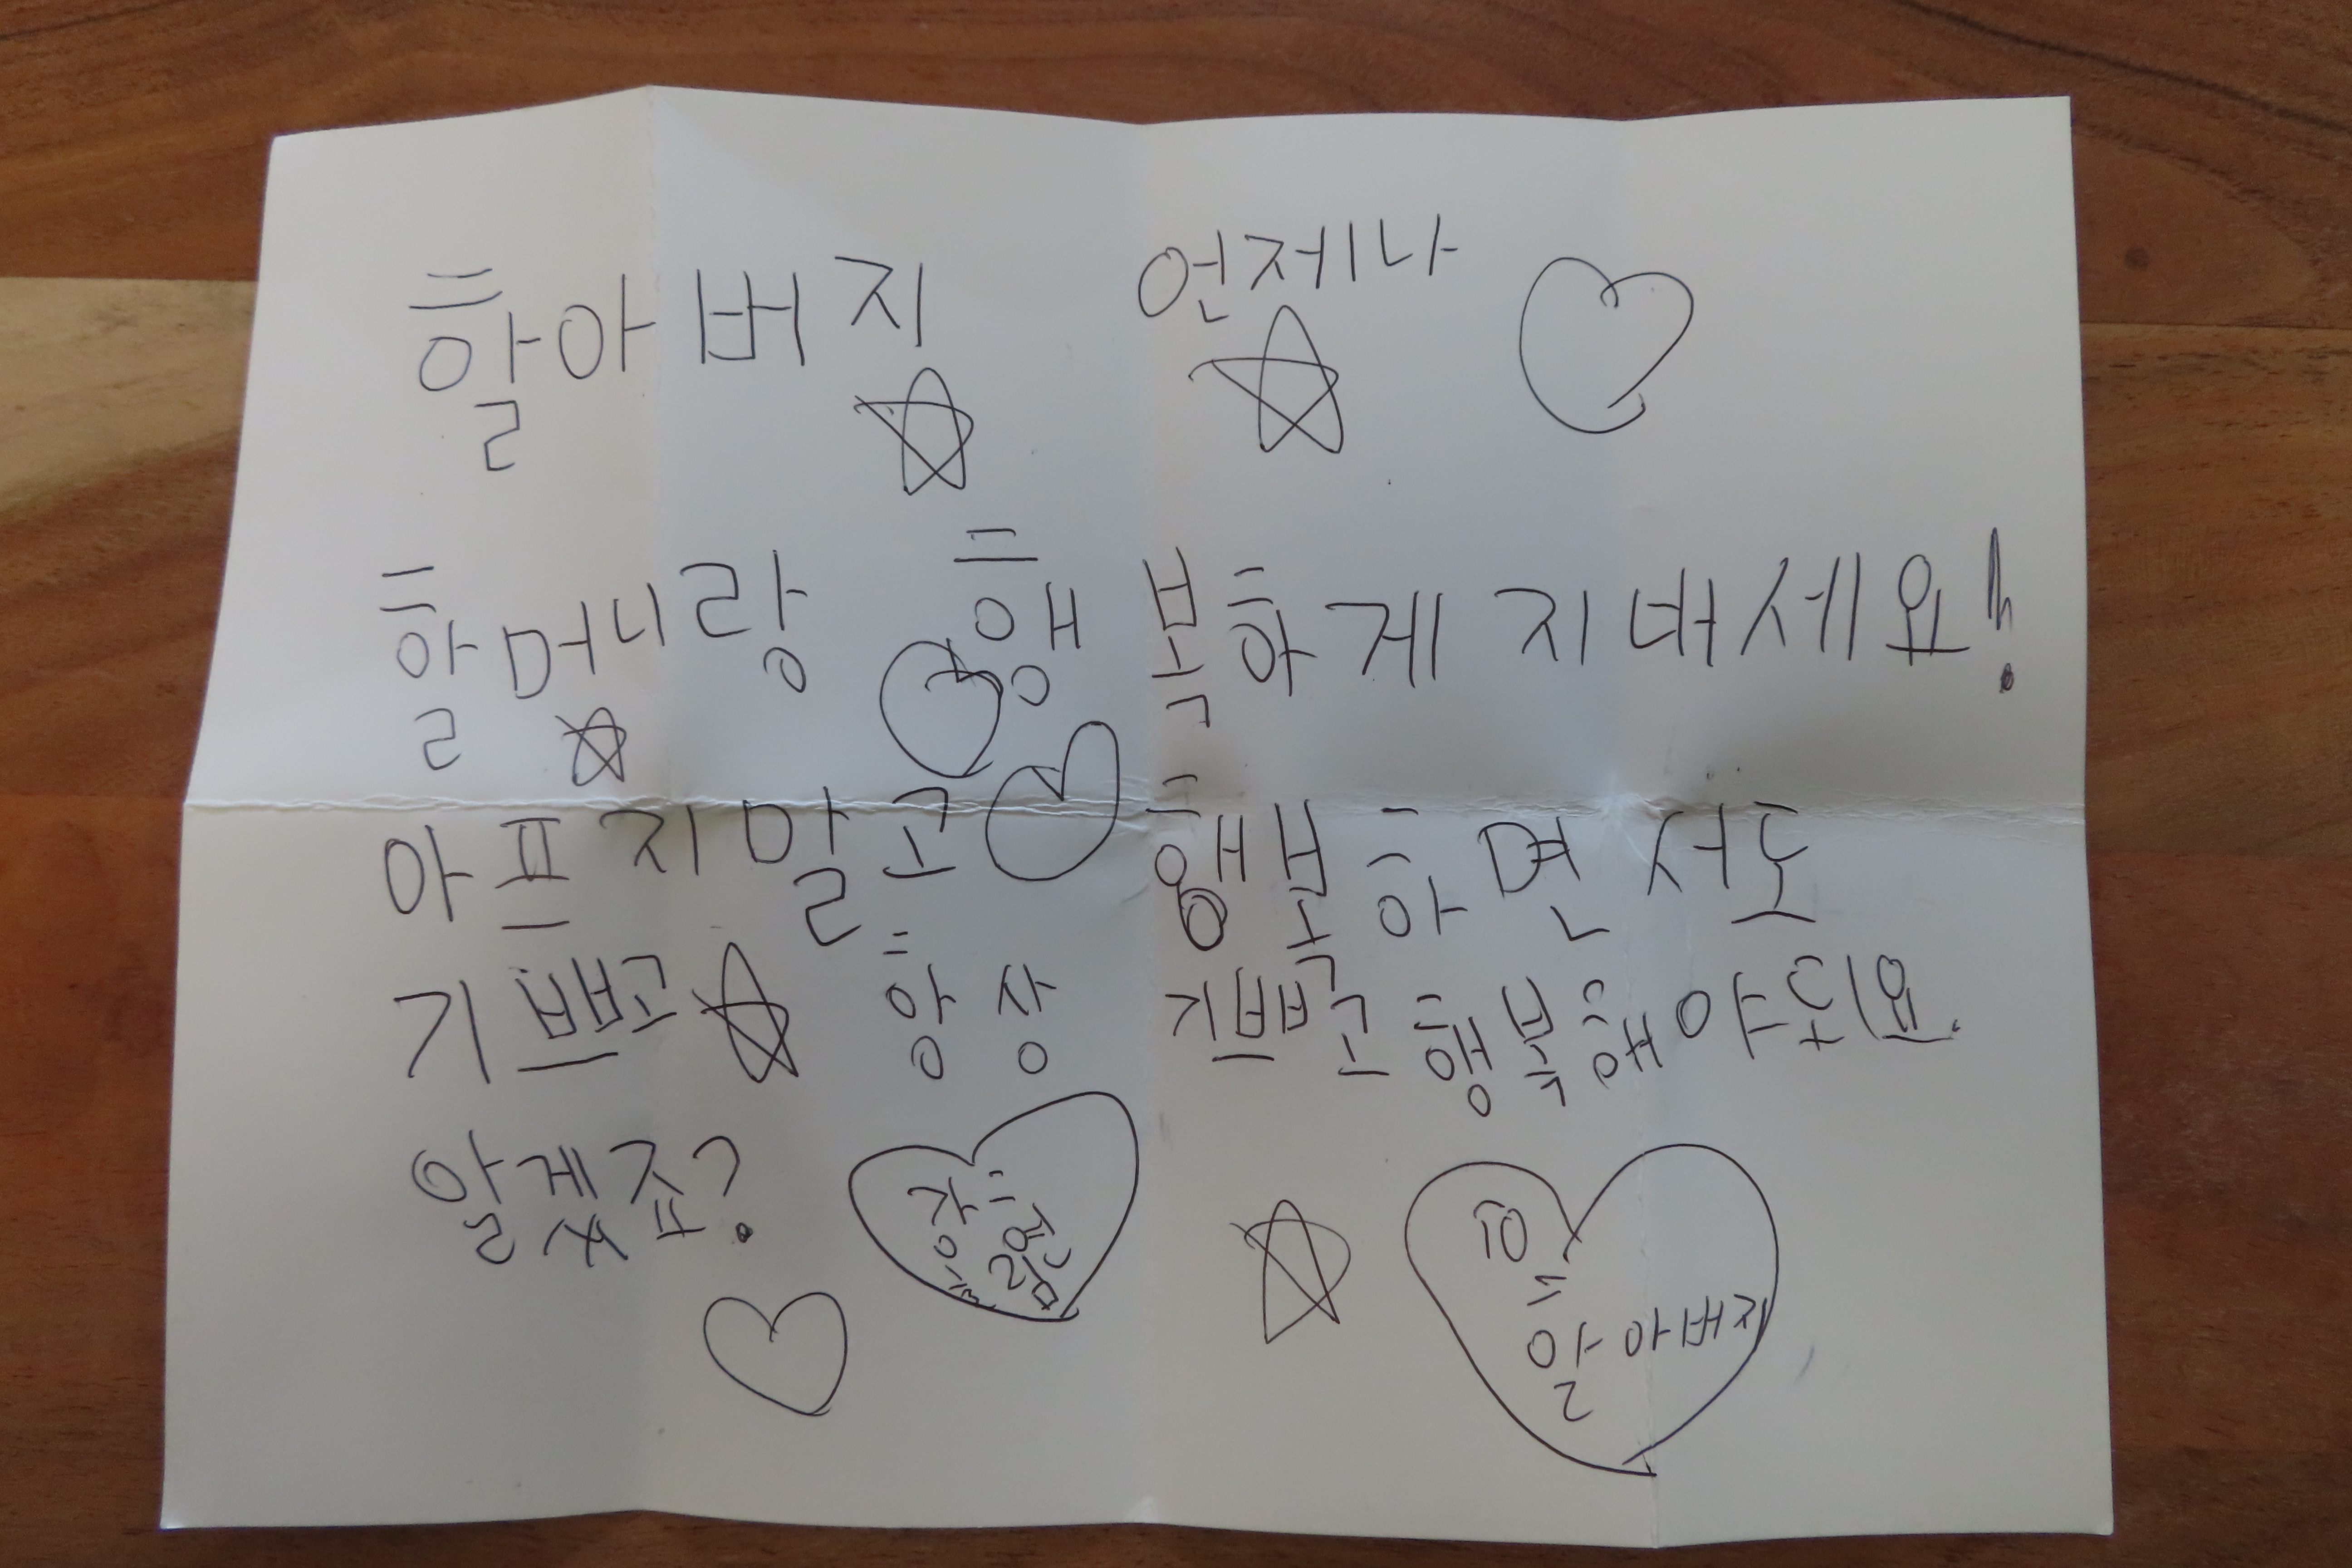 할아버지 언제나
할머니랑 행복하게 지내세요!
아프지말고 행복하면서도
기쁘고 항상 기쁘고 행복해야되요.
알겠죠?
TO
할아버지